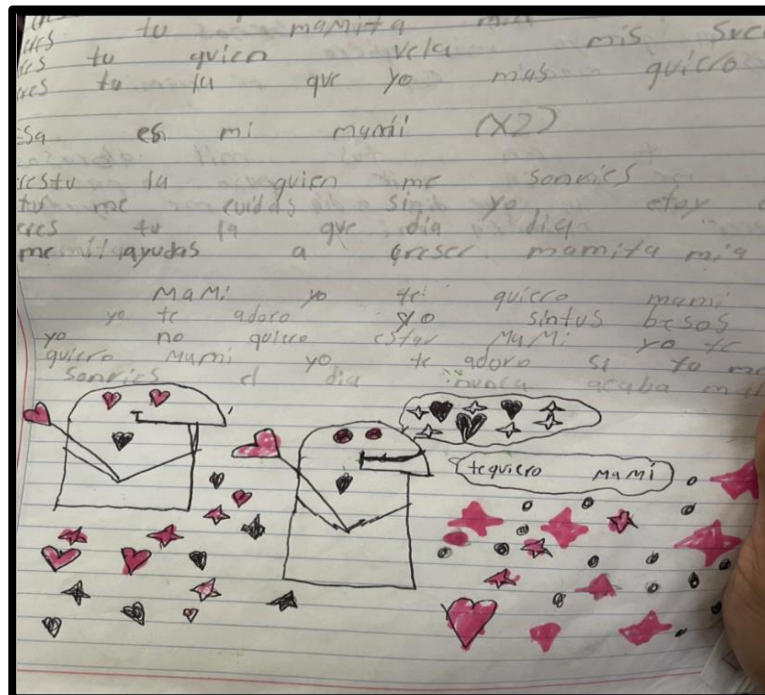 tu mamita mia
eres tu quien vela mis sue
eres tu la que yo mas quiero
Esa es mi mami (X2)
erestu la quien me sonries
tu me cuidas si yo etoy
eres tu la que dia dia
me ayudas a creser mamita mia
MaMi yo te quiero mami
yo te adoro yo sintus besos
yo no quiero estar MaMi yo te
quiero Mami yo te adoro si tu me
sonries el dia nunca acaba
tequiero MaMi